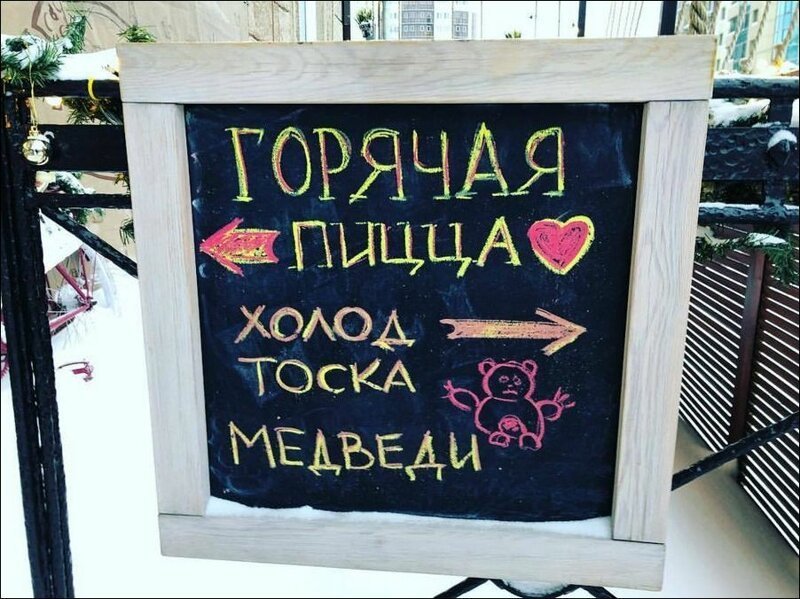 ГОРЯЧАЯ
ПИЦЦА
ХОЛОД
ТОСКА
МЕДВЕДИ